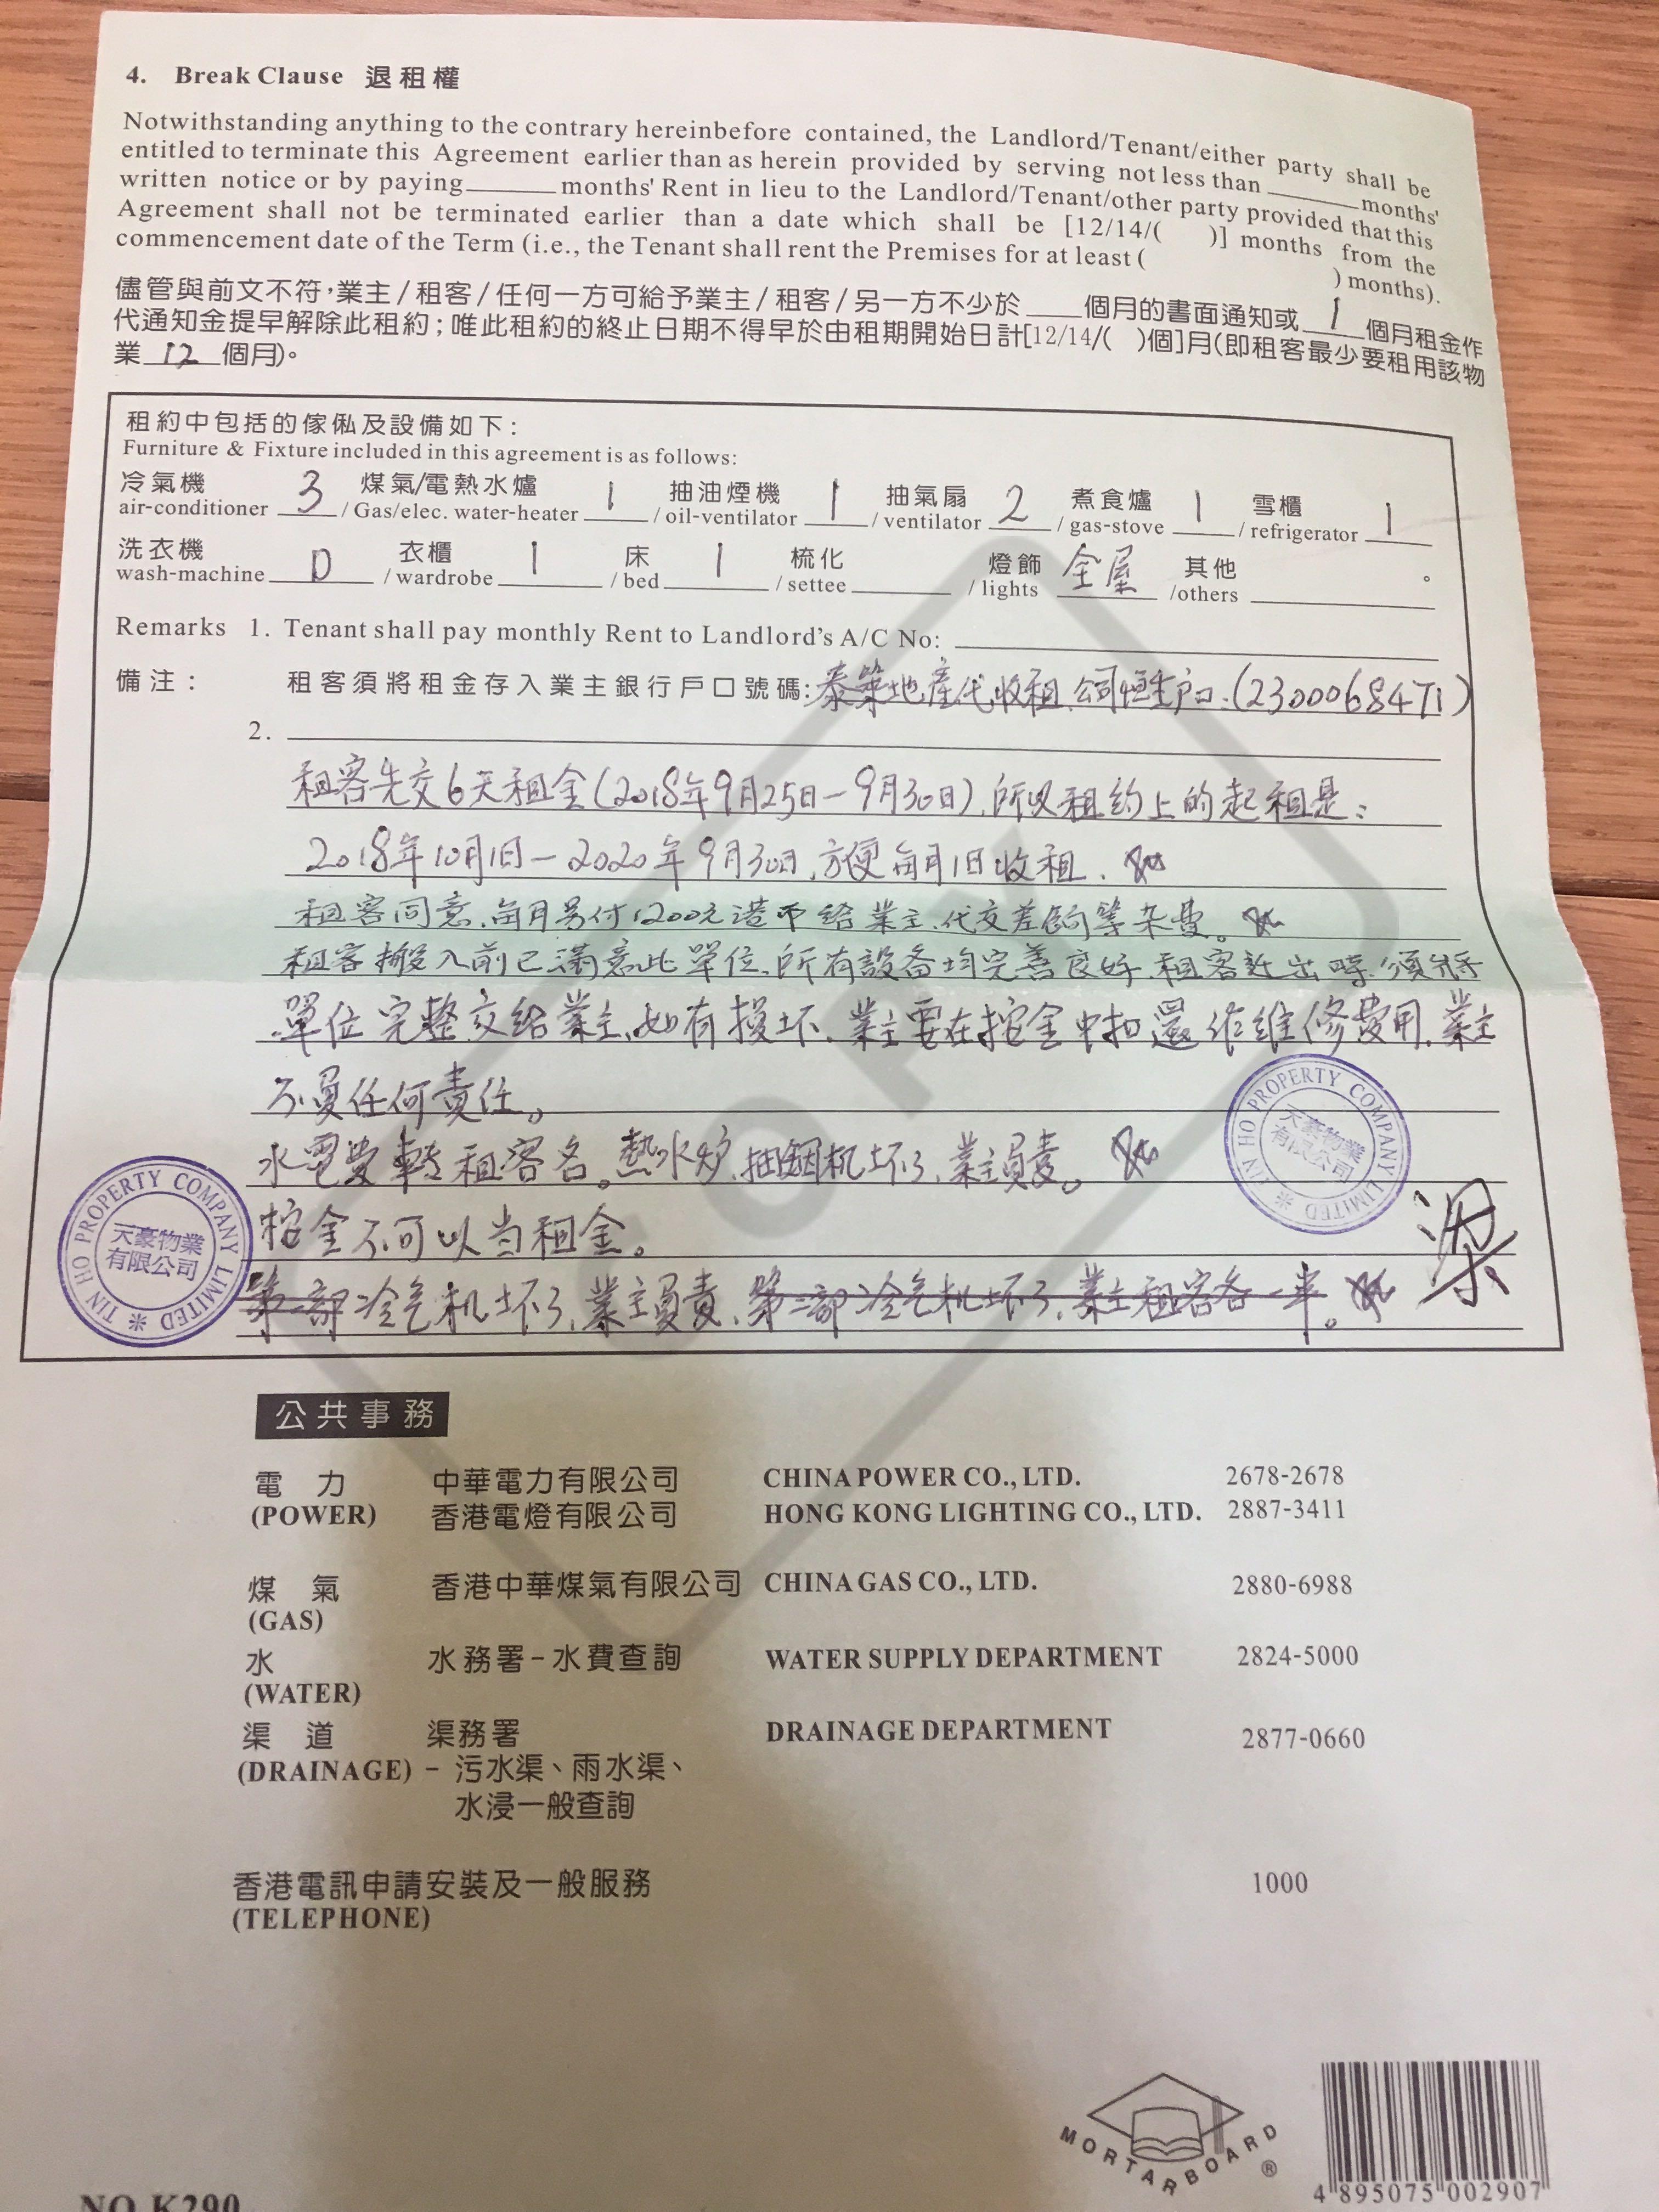 4. Break Clause 退租權
Notwithstanding anything to the contrary hereinbefore contained, the Landlord/Tenant/either party shall be
entitled to terminate this Agreement earlier than as herein provided by serving not less than ______ months'
written notice or by paying ______ months' Rent in lieu to the Landlord/Tenant/other party provided that this
Agreement shall not be terminated earlier than a date which shall be [12/14/( )] months from the
commencement date of the Term (i.e., the Tenant shall rent the Premises for at least ( ) months).
儘管與前文不符,業主/租客/任何一方可給予業主/租客/另一方不少於____個月的書面通知或 1 個月租金作
代通知金提早解除此租約;唯此租約的終止日期不得早於由租期開始日計[12/14/( )個]月(即租客最少要租用該物
業 12 個月)。
租約中包括的傢俬及設備如下:
Furniture & Fixture included in this agreement is as follows:
冷氣機 煤氣/電熱水爐 抽油煙機 抽氣扇 煮食爐 雪櫃
air-conditioner 3 /Gas/elec. water-heater 1 /oil-ventilator 1 /ventilator 2 /gas-stove 1 /refrigerator 1
洗衣機 衣櫃 床 梳化 燈飾 全屋 其他
wash-machine 0 /wardrobe 1 /bed 1 /settee ______ /lights ______ /others ______ 。
Remarks 1. Tenant shall pay monthly Rent to Landlord's A/C No: ______
備注: 租客須將租金存入業主銀行戶口號碼:泰築地產代收租.公司恒生戶口.(230006847)
2. ______
租客先交6天租金(2018年9月25日-9月30日),所以租約上的起租是:
2018年10月1日-2020年9月30日,方便每月1日收租.
租客同意,每月另付1200元港币給業主,代交差餉等杂費。
租客搬入前已滿意此單位,所有設备均完善良好,租客迁出時,須將
單位完整交給業主,如有損坏,業主要在按金中扣還作維修費用,業主
不負任何責任。
水電費轉租客名。熱水炉,抽烟机坏了,業主負責。
按金不可以当租金。
第一部冷气机坏了,業主負責,第二部冷气机坏了,業主租客各一半。
梁
TIN HO PROPERTY COMPANY LIMITED
天豪物業
有限公司
TIN HO PROPERTY COMPANY LIMITED
天豪物業
有限公司
COPY
公共事務
電力 中華電力有限公司 CHINA POWER CO., LTD. 2678-2678
(POWER) 香港電燈有限公司 HONG KONG LIGHTING CO., LTD. 2887-3411
煤氣 香港中華煤氣有限公司 CHINA GAS CO., LTD. 2880-6988
(GAS)
水 水務署-水費查詢 WATER SUPPLY DEPARTMENT 2824-5000
(WATER)
渠道 渠務署 DRAINAGE DEPARTMENT 2877-0660
(DRAINAGE) - 污水渠、雨水渠、
水浸一般查詢
香港電訊申請安裝及一般服務 1000
(TELEPHONE)
MORTARBOARD ®
4 895075 002907
NO. K290